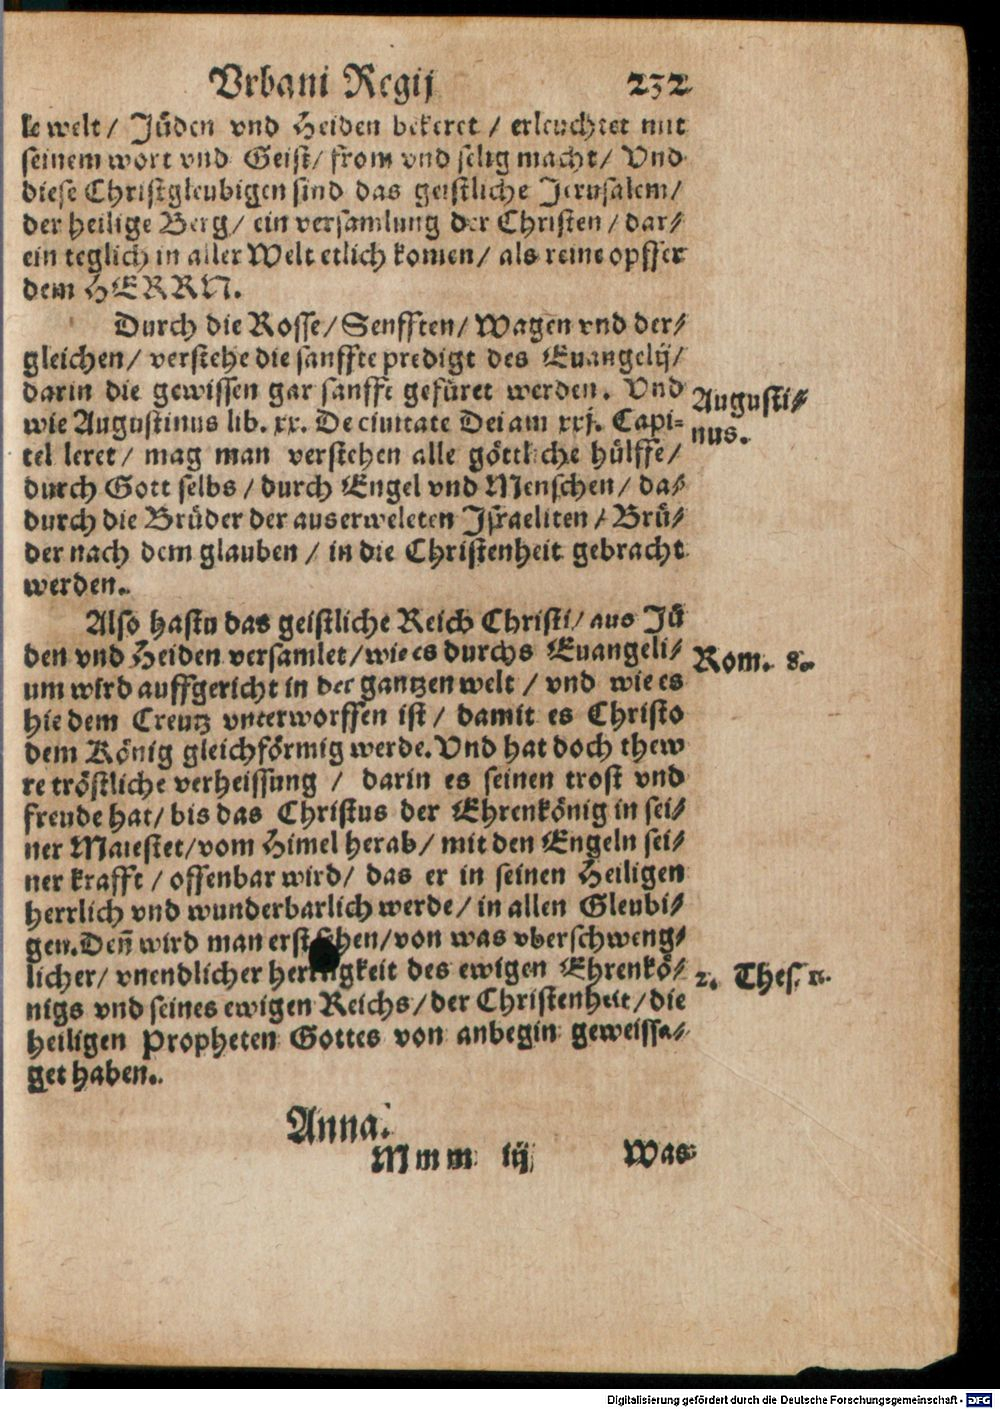 Vrbani Regij 232
le welt / Jüden vnd Heiden bekeret / erleuchtet mit
seinem wort vnd Geist / from vnd selig macht / Vnd
diese Christgleubigen sind das geistliche Jerusalem /
der heilige Berg / ein versamlung der Christen / dar⸗
ein teglich in aller Welt etlich komen / als reine opffer
dem HERRN.
Durch die Rosse / Senfften / Wagen vnd der⸗
gleichen / verstehe die sanffte predigt des Euangelij /
darin die gewissen gar sanfft gefüret werden. Vnd
Augusti⸗
wie Augustinus lib. xx. De ciuitate Dei am xxj. Capi⸗
nus.
tel leret / mag man verstehen alle göttliche hülffe /
durch Gott selbs / durch Engel vnd Menschen / da⸗
durch die Brüder der auserweleten Israeliten / Brü⸗
der nach dem glauben / in die Christenheit gebracht
werden.
Also hastu das geistliche Reich Christi / aus Jü
den vnd Heiden versamlet / wie es durchs Euangeli⸗
Rom. 8.
um wird auffgericht in der gantzen welt / vnd wie es
hie dem Creutz vnterworffen ist / damit es Christo
dem König gleichförmig werde. Vnd hat doch thew
re tröstliche verheissung / darin es seinen trost vnd
freude hat / bis das Christus der Ehrenkönig in sei⸗
ner Maiestet / vom Himel herab / mit den Engeln sei⸗
ner krafft / offenbar wird / das er in seinen Heiligen
herrlich vnd wunderbarlich werde / in allen Gleubi⸗
gen. Deñ wird man erst / von was vberschweng⸗
licher / vnendlicher des ewigen Ehrenkö⸗
2. Thes. 1.
nigs vnd seines ewigen Reichs / der Christenheit / die
heiligen Propheten Gottes von anbegin geweissa⸗
get haben.
Anna.
Mmm iij Was
Digitalisierung gefördert durch die Deutsche Forschungsgemeinschaft - DFG